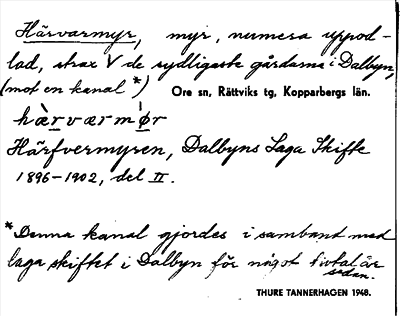 Härvarmyr, myr, numera uppod-
lad, strax V de sydligaste gårdarna i Dalbyn,
(mot en kanal *)
Ore sn, Rättviks tg, Kopparbergs län.
hæ̀rværmø̀r
Härfvermyren, Dalbyns Laga Skifte
1896–1902, del II.
*Denna kanal gjordes i samband med
laga skiftet i Dalbyn för något tiotal år
sedan.
THURE TANNERHAGEN 1948.